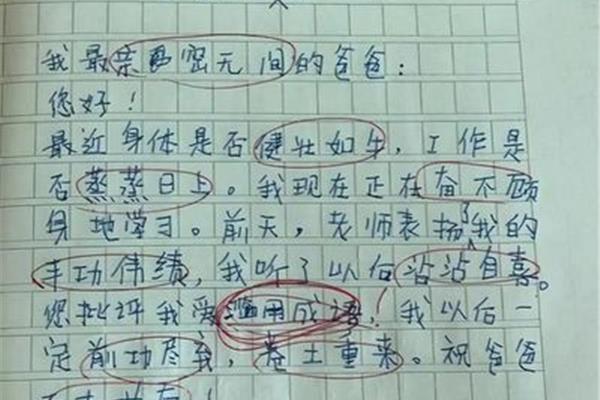 我最亲密无间的爸爸：
您好！
最近身体是否健壮如牛，工作是
否蒸蒸日上。我现在正在奋不顾
身地学习。前天，老师表扬了我的
丰功伟绩，我听了以后沾沾自喜。
您批评我爱滥用成语！我以后一
定前功尽弃，卷土重来。祝爸爸